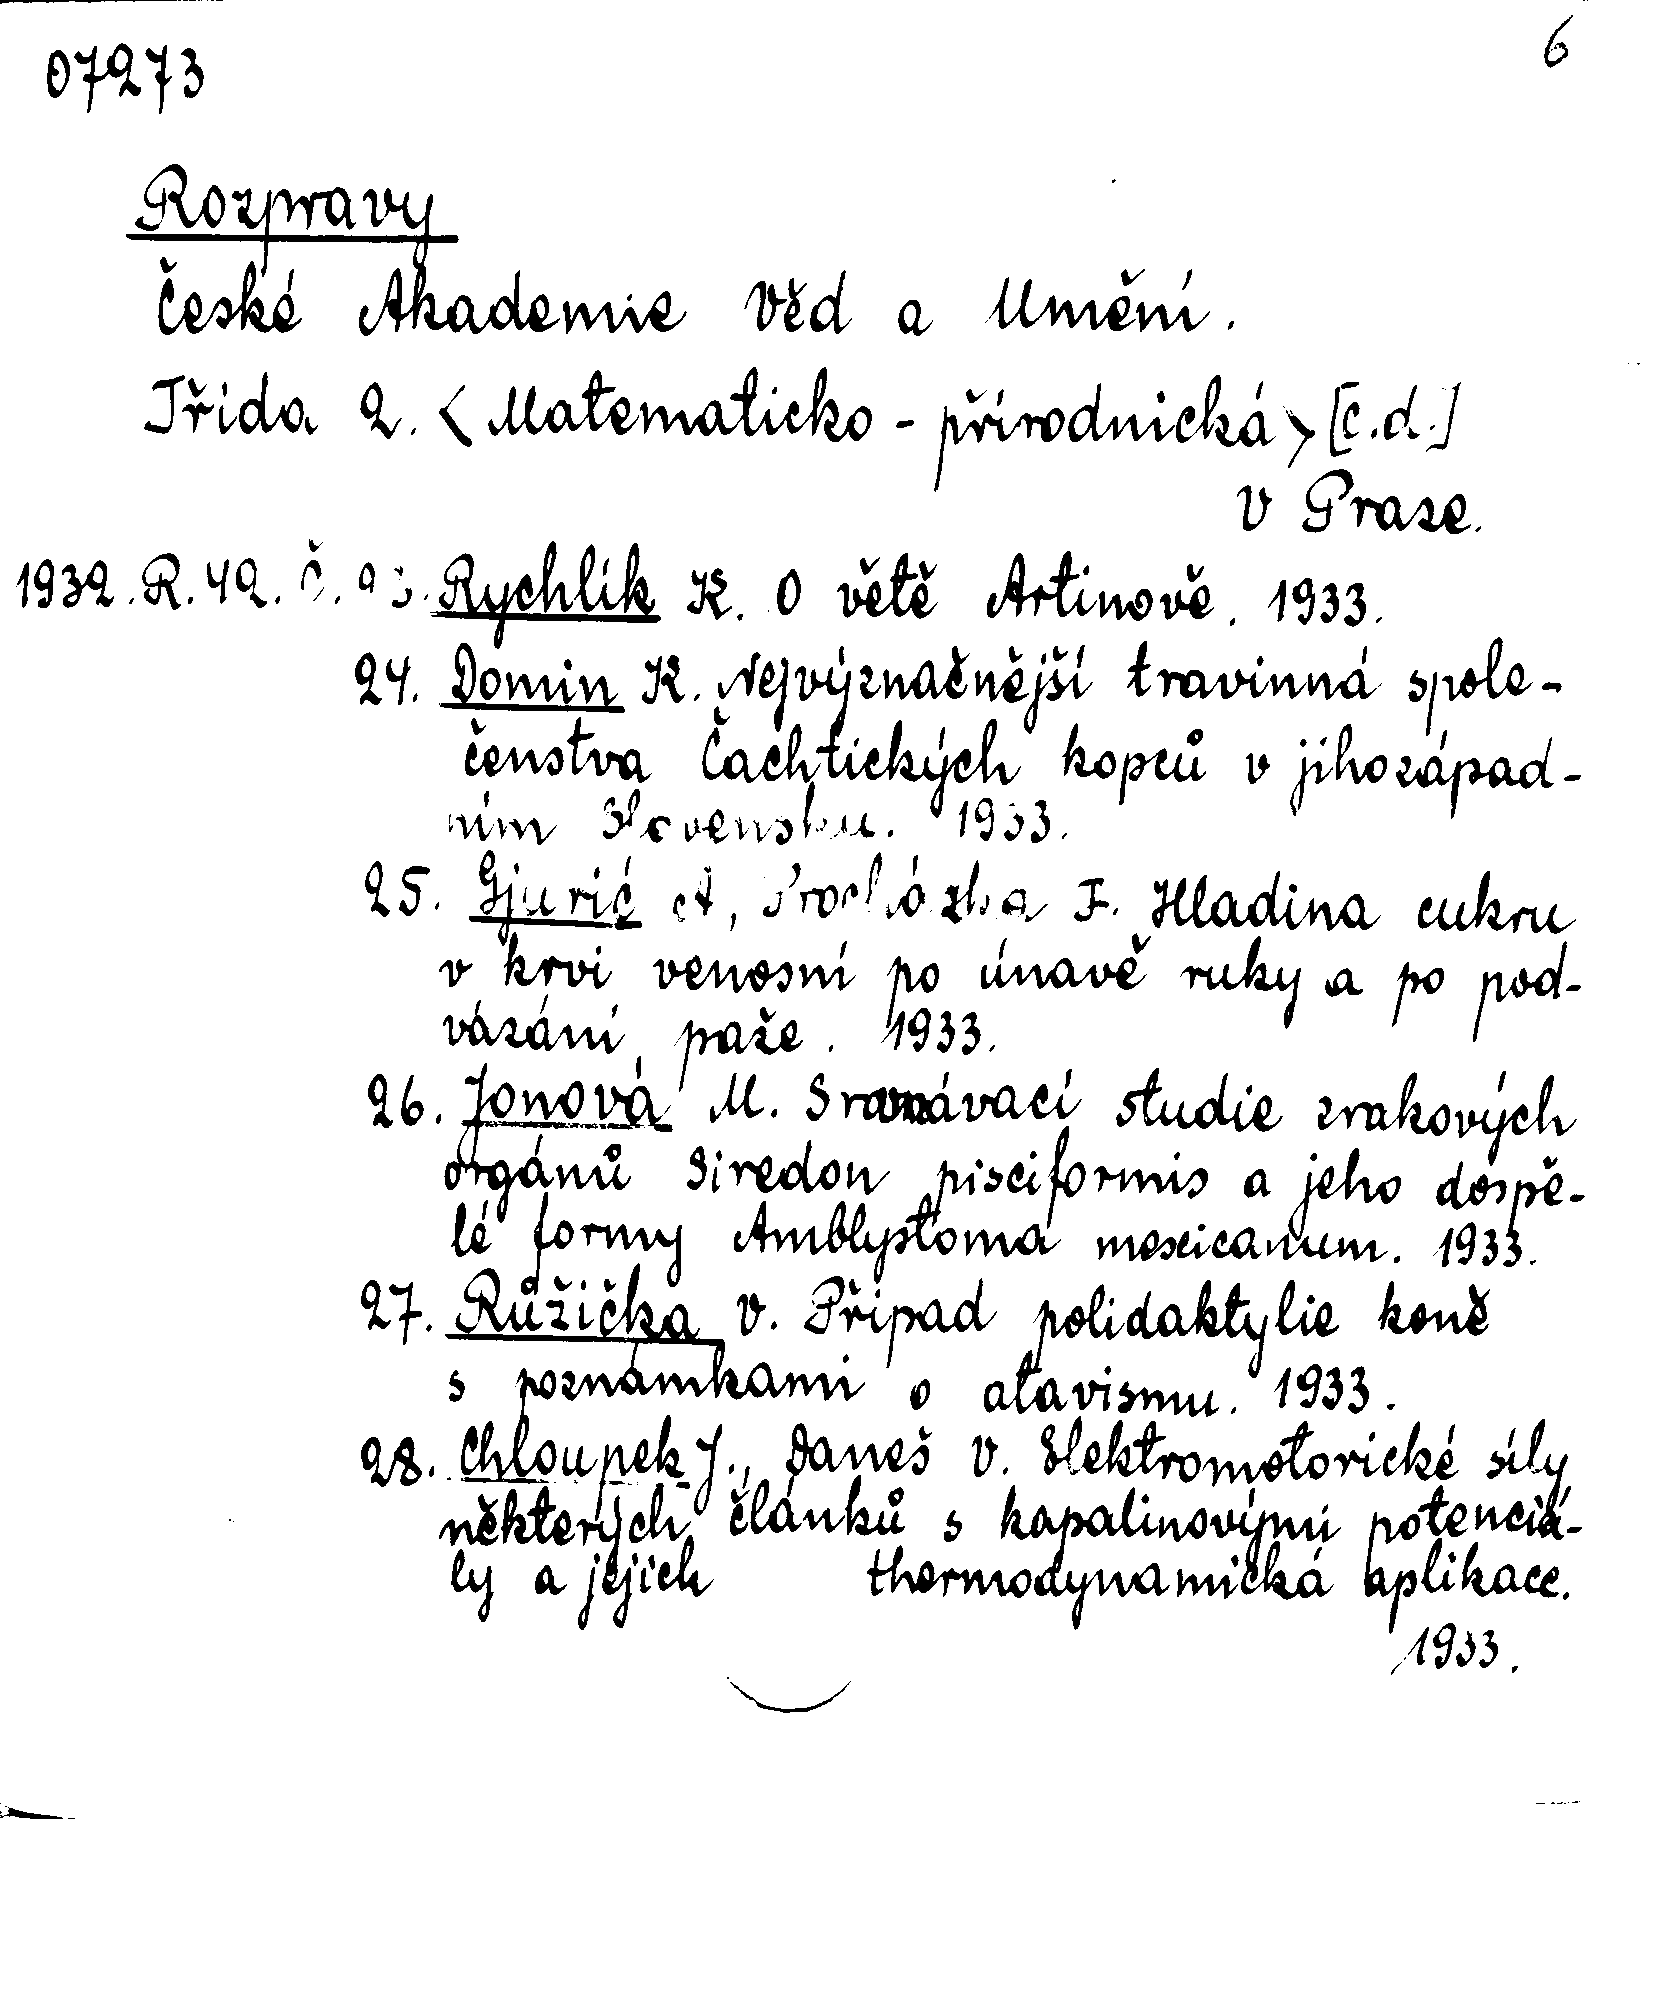 07273
6
Rozpravy
České Akademie Věd a Umění.
Třída 2. <Matematicko-přírodnická> [č.d.]
v Praze.
1932. R. 42. Č. 23. Rychlík K. O větě Artinově. 1933.
24. Domin K. Nejvýznačnější travinná spole-
čenstva Čachtických kopců v jihozápad-
ním Slovensku. 1933.
25. Gjurić A, Procházka F. Hladina cukru
v krvi venosní po únavě ruky a po pod-
vázání paže. 1933.
26. Jonová M. Srovnávací studie zrakových
orgánů Siredon pisciformis a jeho dospě-
lé formy Amblystoma mexicanum. 1933.
27. Růžička V. Případ polidaktylie koně
s poznámkami o atavismu. 1933.
28. Chloupek J., Daneš V. Elektromotorické síly
některých článků s kapalinovými potenciá-
ly a jejich thermodynamická aplikace.
1933.